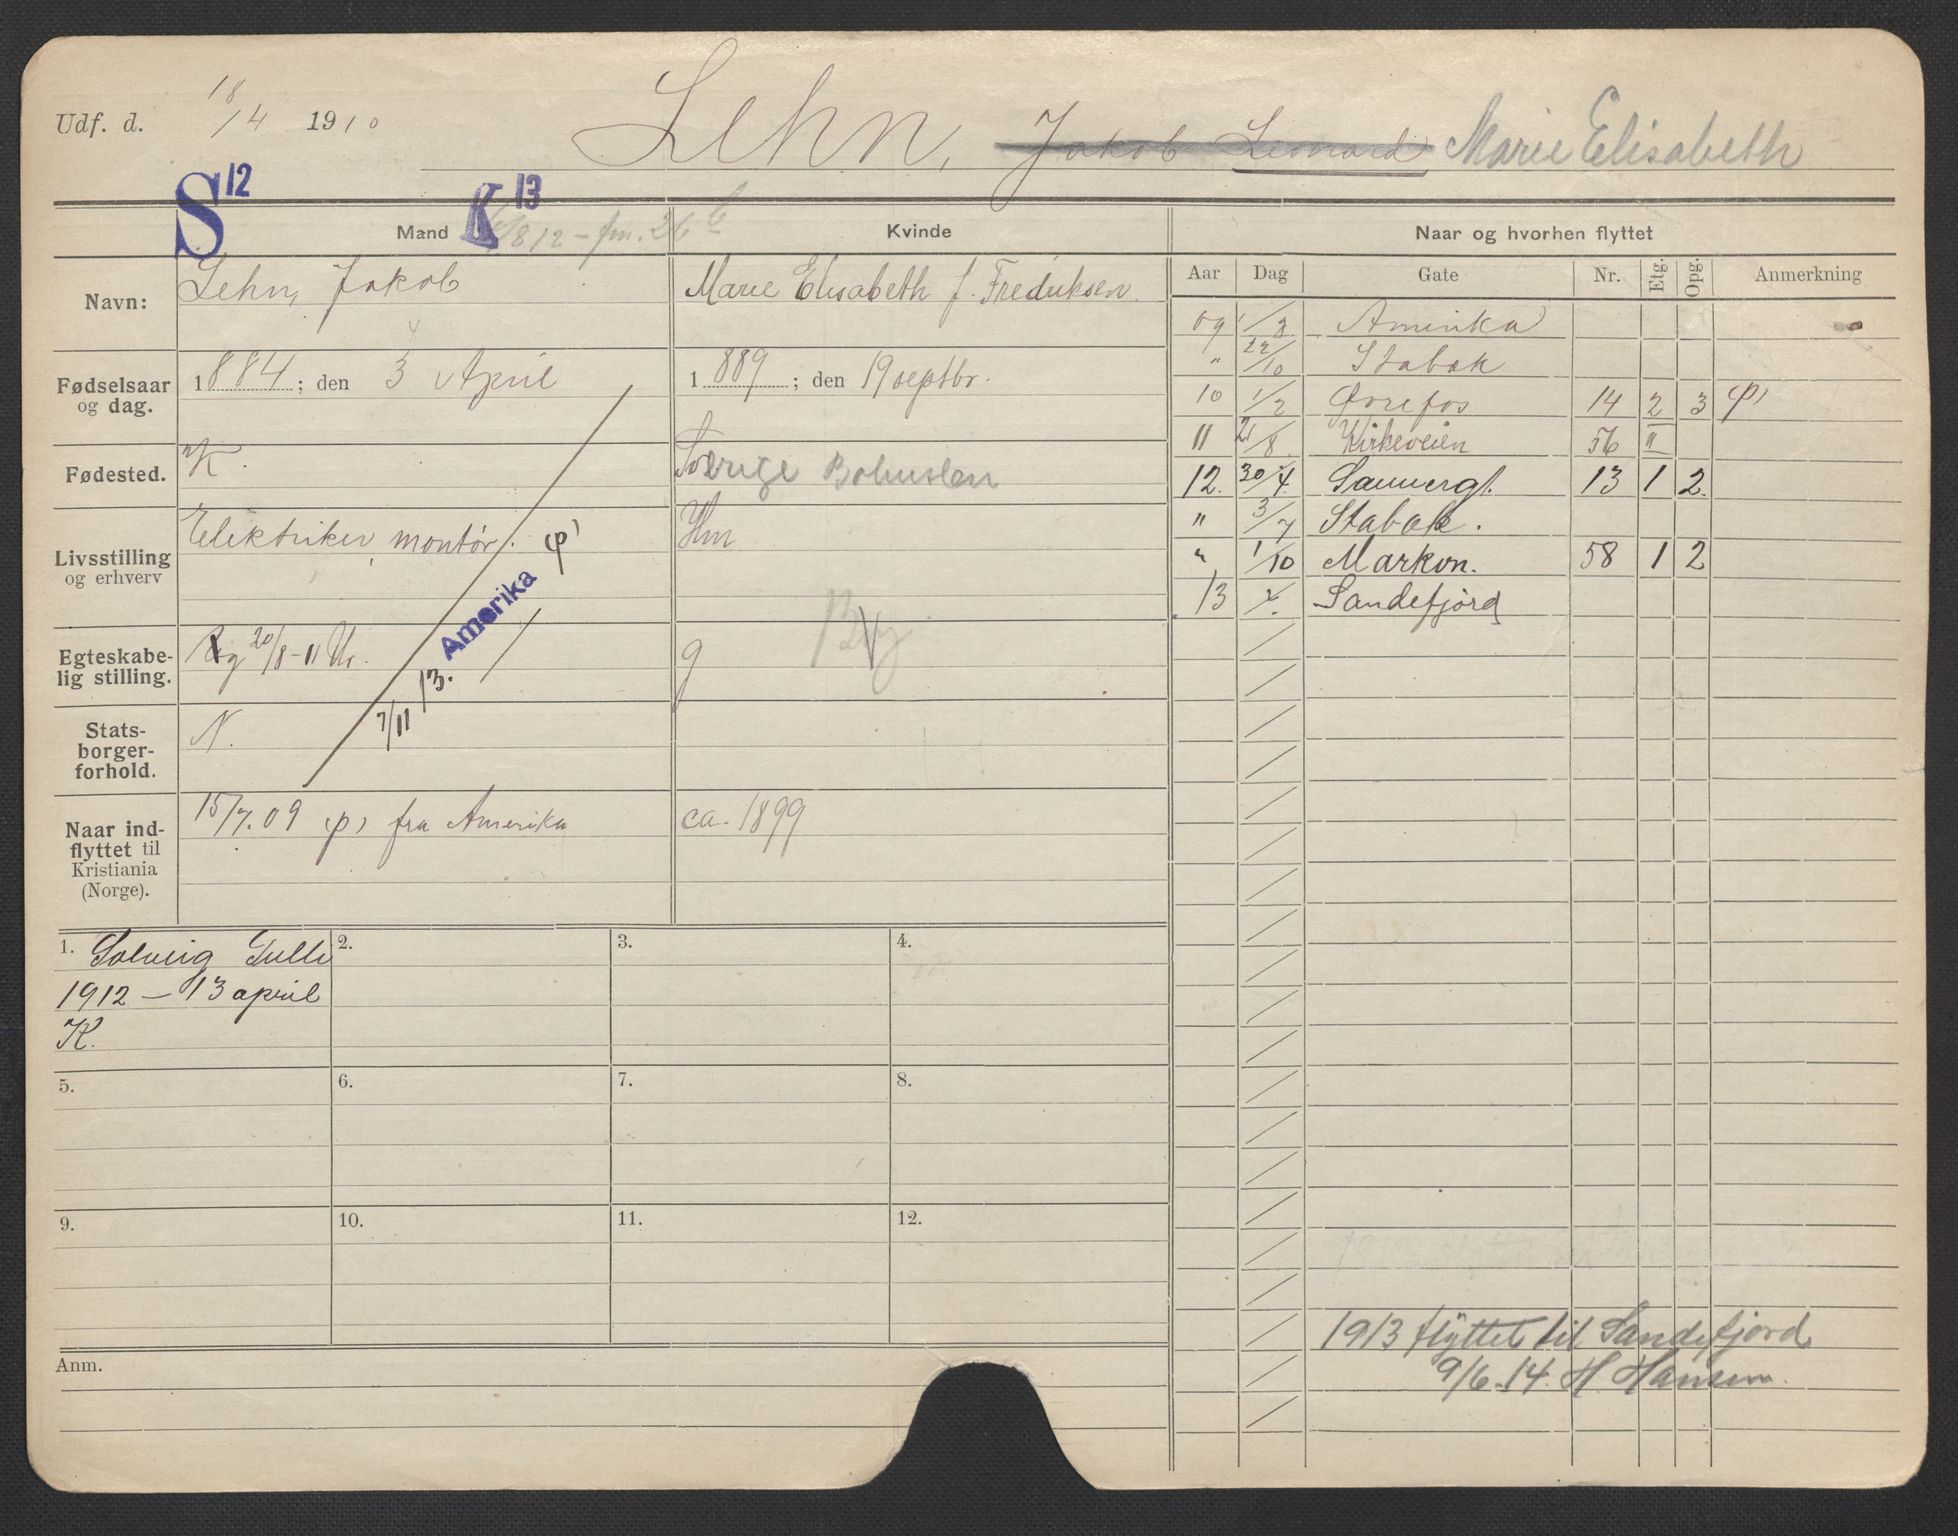 Udf. d. 18/4 1910
Lehn, Jakob Leonard Marie Elisabeth
S 12
K 13
Mand
8 12 - fm. 26
Kvinde
Naar og hvorhen flyttet
Navn:
Lehn, Jakob
Marie Elisabeth f. Fredriksen.
Fødselsaar og dag.
1884; den 3 April
1889; den 19 septbr.
Fødested.
K.
Sverige Bohuslen
Livsstilling og erhverv
Elektriker, montør. φ)
Hm
Amerika
7/11 13.
By
Egteskabelig stilling.
g 20/8-11 Ur.
g
Statsborgerforhold.
N.
Naar indflyttet til Kristiania (Norge).
15/7.09 φ) fra Amerika
ca. 1899
Aar Dag Gate Nr. Etg. Opg. Anmerkning
09 1/8 Amerika
" 22/10 Stabæk
10 1/2 Øvrefos 14 2 3 φ)
11 21/8 Kirkeveien 56 "
12. 30/4. Sannergt. 13 1 2.
" 3/7 Stabæk.
" 1/10 Markvn. 58 1 2
13 Sandefjord
1. Solveig
1912 - 13 april
K.
2.
3.
4.
5.
6.
7.
8.
9.
10.
11.
12.
Anm.
1913 flyttet til Sandefjord
9/6-14. H. Hansen.